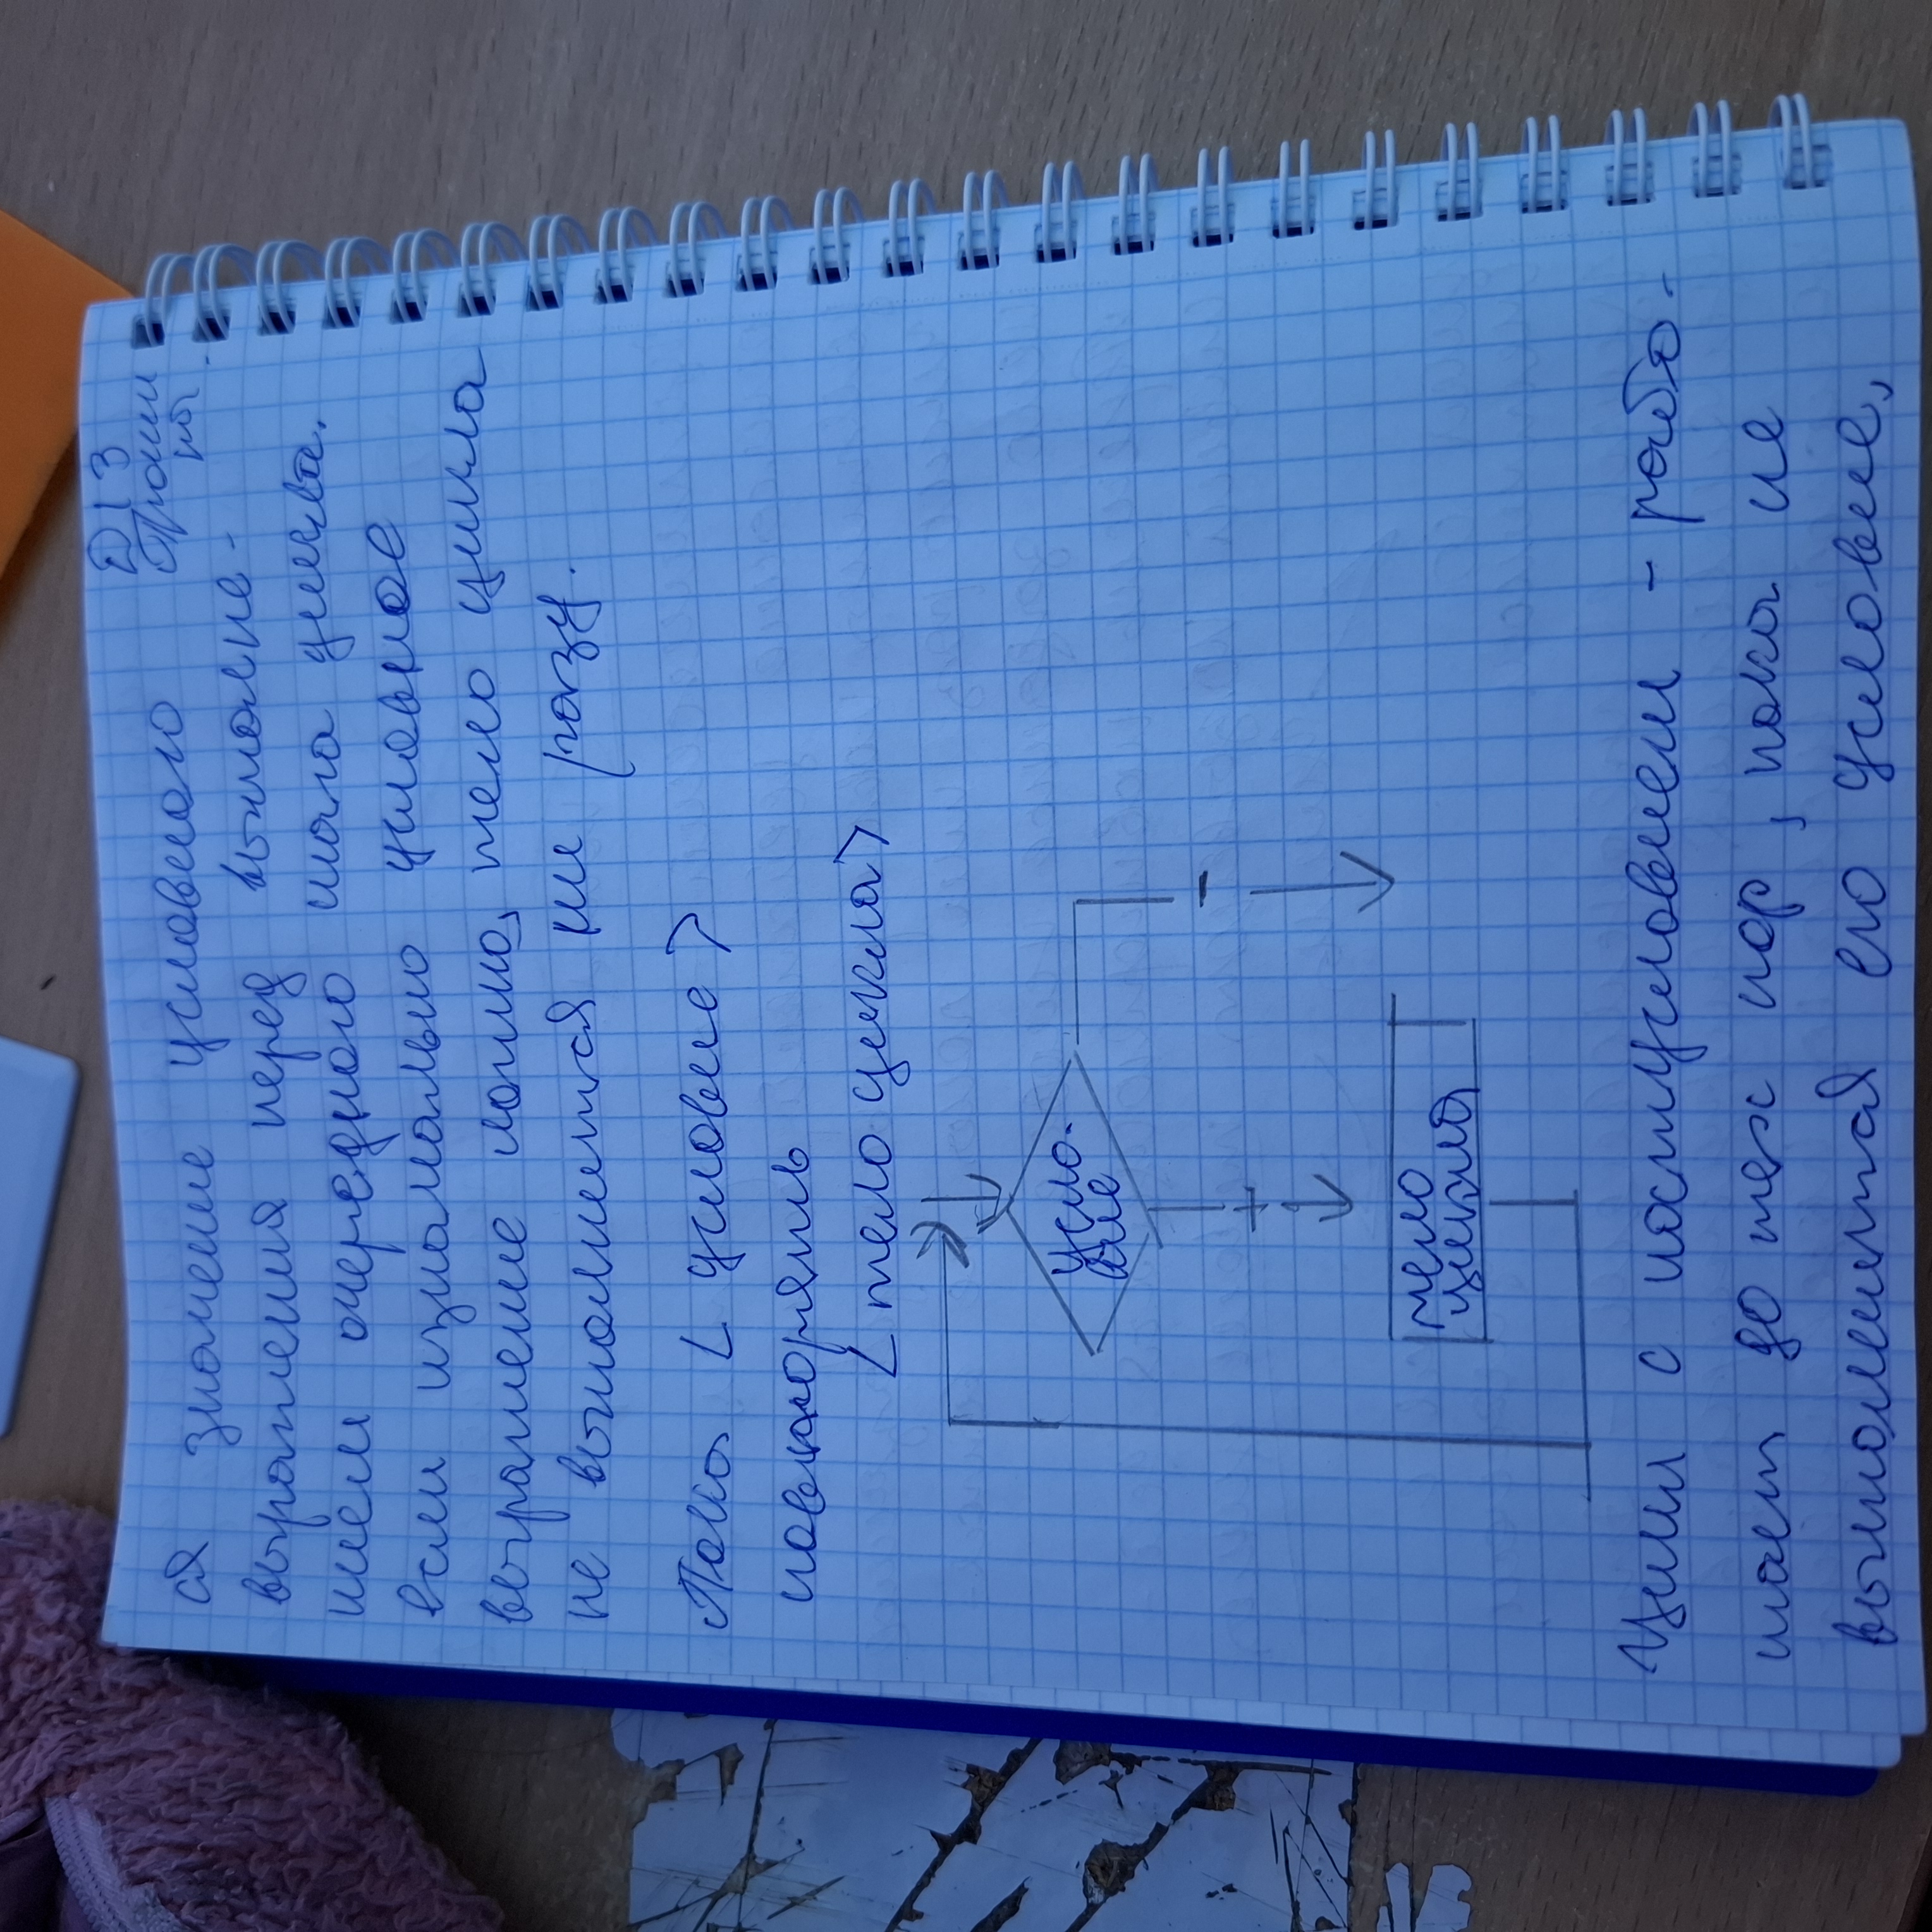 Д/З
ся значение условного
выражения перед выполне-
нием очередного шага цикла.
если изначально условное
выражение ложно, тело цикла
не выполнится ни разу.
Пока < условие >
повторять
< тело цикла >
усло-
вие
+
-
тело
цикла
Цикл с постусловием - рабо-
тает до тех пор, пока не
выполнится его условие,